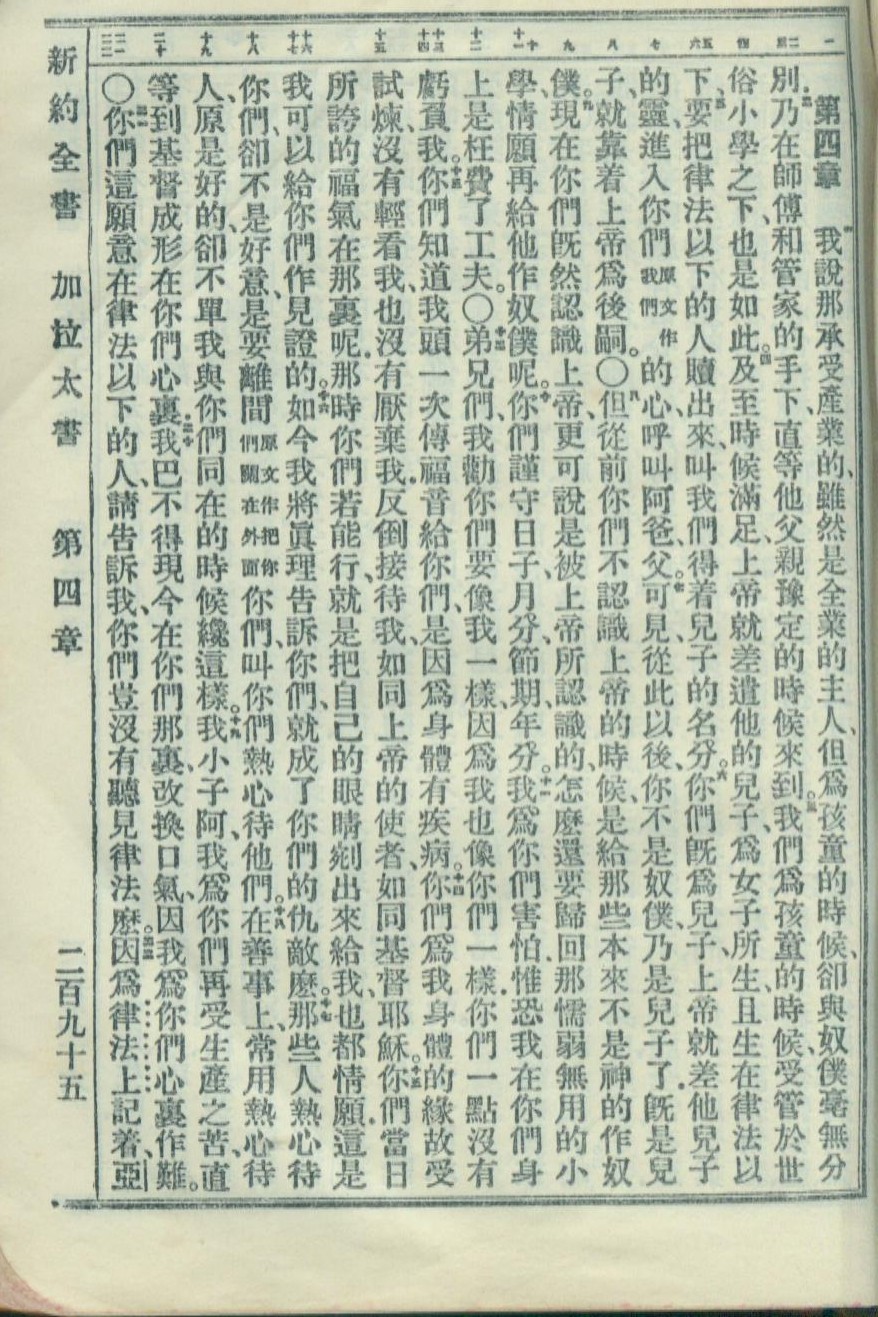 一 二 三 四 五 六 七 八 九 十 十一 十二 十三 十四 十五 十六 十七 十八 十九 二十 二一 二二
第四章 我說那承受產業的、雖然是全業的主人、但爲孩童的時候、卻與奴僕毫無分
別、二乃在師傅和管家的手下、直等他父親豫定的時候來到。三我們爲孩童的時候、受管於世
俗小學之下、也是如此。四及至時候滿足、上帝就差遣他的兒子、爲女子所生、且生在律法以
下、五要把律法以下的人贖出來、叫我們得着兒子的名分。六你們旣爲兒子、上帝就差他兒子
的靈、進入你們原文作我們的心、呼叫阿爸父。七可見從此以後、你不是奴僕、乃是兒子了、旣是兒
子、就靠着上帝爲後嗣。〇八但從前你們不認識上帝的時候、是給那些本來不是神的作奴
僕、九現在你們旣然認識上帝、更可說是被上帝所認識的、怎麼還要歸回那懦弱無用的小
學、情願再給他作奴僕呢。十你們謹守日子、月分、節期、年分。十一我爲你們害怕、惟恐我在你們身
上是枉費了工夫。〇十二弟兄們、我勸你們要像我一樣、因爲我也像你們一樣、你們一點沒有
虧負我。十三你們知道我頭一次傳福音給你們、是因爲身體有疾病。十四你們爲我身體的緣故受
試煉、沒有輕看我、也沒有厭棄我、反倒接待我、如同上帝的使者、如同基督耶穌。十五你們當日
所誇的福氣在那裏呢、那時你們若能行、就是把自己的眼睛剜出來給我、也都情願、這是
我可以給你們作見證的。十六如今我將眞理告訴你們、就成了你們的仇敵麼。十七那些人熱心待
你們、卻不是好意、是要離間原文作把你們關在外面你們、叫你們熱心待他們。十八在善事上、常用熱心待
人、原是好的、卻不單我與你們同在的時候纔這樣。十九我小子阿、我爲你們再受生產之苦、直
等到基督成形在你們心裏、二十我巴不得現今在你們那裏、改換口氣、因我爲你們心裏作難。
〇二一你們這願意在律法以下的人、請告訴我、你們豈沒有聽見律法麼。二二因爲律法上記着、亞
新約全書 加拉太書 第四章 二百九十五